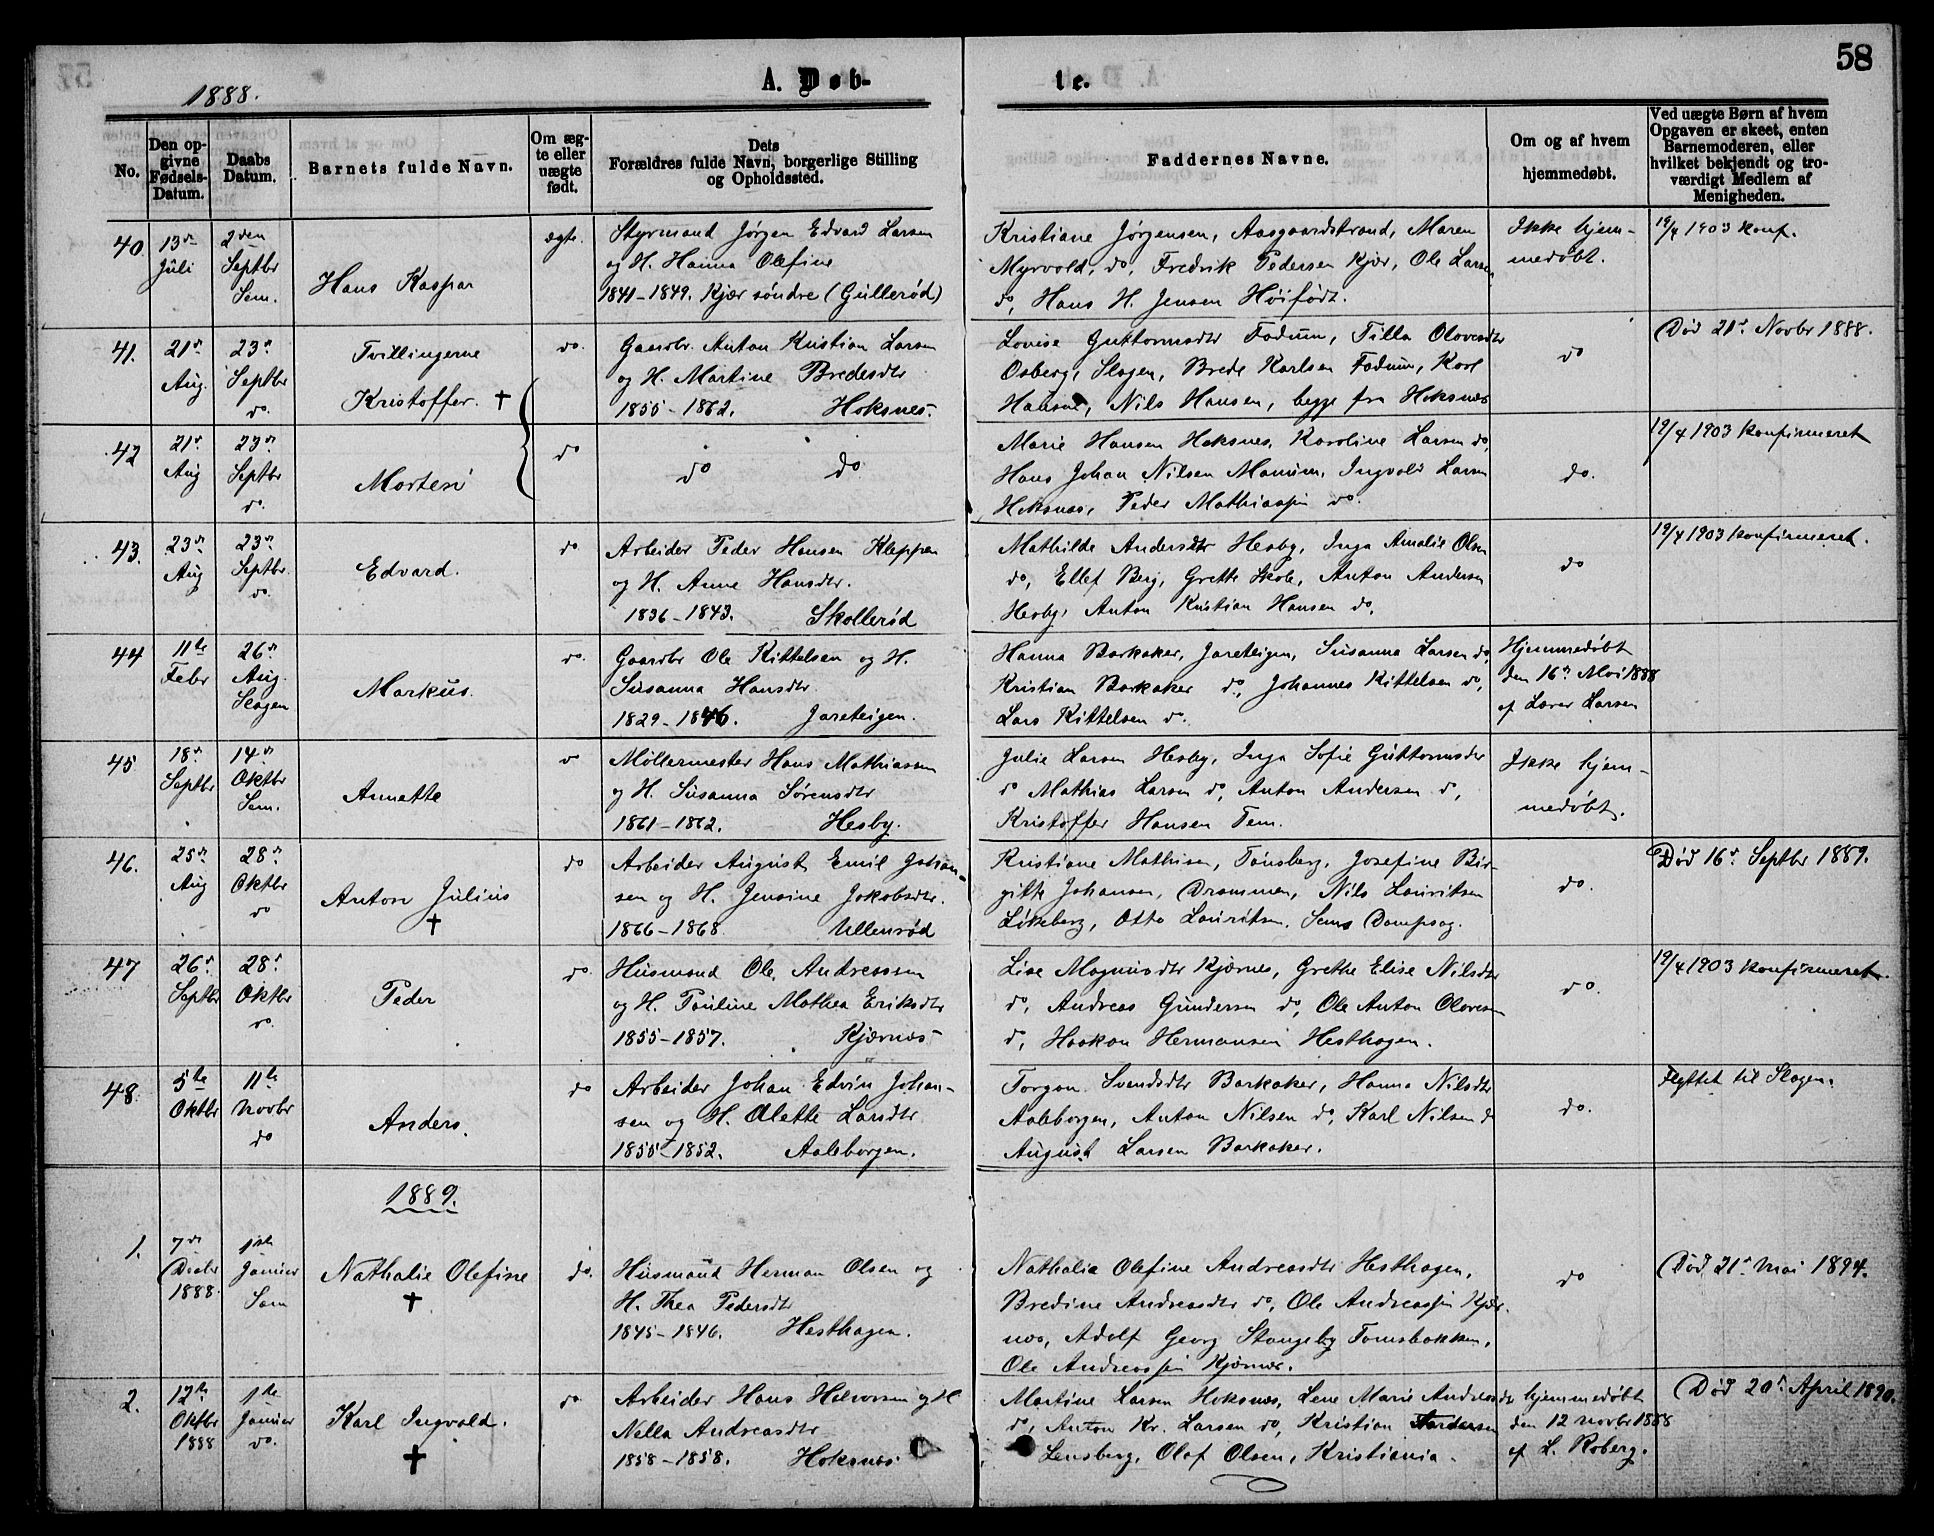 58
1888.
A. Døb-
te.
No.
Den op-
givne
Fødsels-
Datum.
Daabs
Datum.
Barnets fulde Navn.
Om æg-
te eller
uægte
født.
Dets
Forældres fulde Navn, borgerlige Stilling
og Opholdssted.
Faddernes Navne.
Om og af hvem
hjemmedøbt.
Ved uægte Børn af hvem
Opgaven er skeet, enten
Barnemoderen, eller
hvilket bekjendt og tro-
værdigt Medlem af
Menigheden.
40.
13de
Juli
2den
Septbr
Sem.
Hans Kaspar
ægte.
Styrmand Jørgen Edvard Larsen
og H. Hanna Olefine
1841-1849. Kjær søndre (Gullerød)
Kristiane Jørgensen, Aasgaardstrand, Maren
Myrvold, do, Fredrik Pedersen Kjær, Ole Larsen
do, Hans H. Jensen Höifödt.
Ikke hjem-
medøbt.
19/4 1903 konf.
41.
21de
Aug.
23de
Septbr
do.
Tvillingerne
Kristoffer. †
do.
Gaardbr. Anton Kristian Larsen
og H. Martine Bredesdtr
1855-1862. Hoksnes.
Lovise Guttormsdtr Fodum, Tilla Olovesdtr
Osberg, Slagen, Brede Karlsen Fodum, Karl
Hansen, Nils Hansen, begge fra Hoksnes
do
Død 21de Novbr 1888.
42
21de
Aug
23de
Septbr
do.
Morten
do
do do.
Marie Hansen Hoksnes, Karoline Larsen do,
Hans Johan Nilsen Manum, Ingvald Larsen
Hoksnes, Peder Mathiassen do.
do.
19/4 1903 konfirmeret
43.
23de
Aug
23de
Septbr.
do.
Edvard.
do
Arbeider Peder Hansen Kleppan
og H. Anne Hansdtr.
1836-1843. Skollerød
Mathilde Andersdtr Hesby, Inga Amalie Olsen
do, Ellef Berg, Grette Skole, Anton Andersen
Hesby, Anton Kristian Hansen do.
do
19/4 1903 konfirmeret.
44
11te
Febr
26de
Aug.
Slagen
Markus.
do.
Gaardbr Ole Kittelsen og H.
Susanna Hansdtr.
1829-1846. Jareteigen.
Hanna Barkaker, Jareteigen, Susanna Larsen do,
Kristian Barkaker do, Johannes Kittelsen do,
Lars Kittelsen do.
Hjemmedøbt
den 16de Mai 1888
af Lærer Larsen
45
18de
Septbr
14de
Oktbr
Sem.
Annette
do
Møllermester Hans Mathiassen
og H. Susanna Sørensdtr
1861-1862. Hesby.
Julie Larsen Hesby, Inga Sofie Guttormsdtr
do Mathias Larsen do, Anton Andersen do,
Kristoffer Hansen Tem.
Ikke hjem-
medøbt.
46.
25de
Aug
28de
Oktbr
do
Anton Julius
†
do
Arbeider August Emil Johan-
sen og H. Jensine Jakobsdtr.
1866-1868. Ullenrød
Kristiane Mathisen, Tønsberg, Josefine Bir-
gitte Johansen, Drammen, Nils Lauritsen
Løkeberg, Otto Lauritsen, Sems Dampsag.
do.
Død 16de Septbr 1889.
47
26de
Septbr
28de
Oktbr
do.
Peder
do
Husmand Ole Andreassen
og H. Pauline Mathea Eriksdtr
1855-1857. Kjærnes
Lise Magnusdtr Kjærnes, Grethe Elise Nilsdtr
do, Andreas Gundersen do, Ole Anton Olovesen
do, Haakon Hermansen Hesthagen.
do.
19/4 1903 konfirmeret.
48.
5te
Oktbr
11te
Novbr
do
Anders.
do
Arbeider Johan Edvin Johan-
sen og H. Alette Larsdtr
1855-1852. Aaleborgen.
Torgon Svendsdtr Barkaker, Hanna Nilsdtr
Aaleborgen, Anton Nilsen do, Karl Nilsen do
August Larsen Barkaker.
do.
Flyttet til Slagen.
1889.
1.
7de
Decbr
1888.
1ste
Januar
Sem
Nathalie Olefine
†
do.
Husmand Herman Olsen og
H. Thea Pedersdtr
1845-1846. Hesthagen.
Nathalia Olefine Andreasdtr Hesthagen,
Bredine Andreasdtr do, Ole Andreassen Kjær-
nes, Adolf Georg Stangeby Tomsbakken,
Ole Andreassen Kjærnes.
do
Død 21de Mai 1894.
2.
12te
Oktbr
1888
1ste
Januar
do.
Karl Ingvald.
†
do
Arbeider Hans Halvorsen og H
Nella Andreasdtr
1858-1858. Hoksnes
Martine Larsen Hoksnes, Lene Marie Andreasdtr
do, Anton Kr. Larsen do, Kristian Andersen
Lensberg, Olaf Olsen, Kristiania.
hjemmedøbt
den 12 Novbr 1888
af L. Roberg.
Død 20de April 1890.